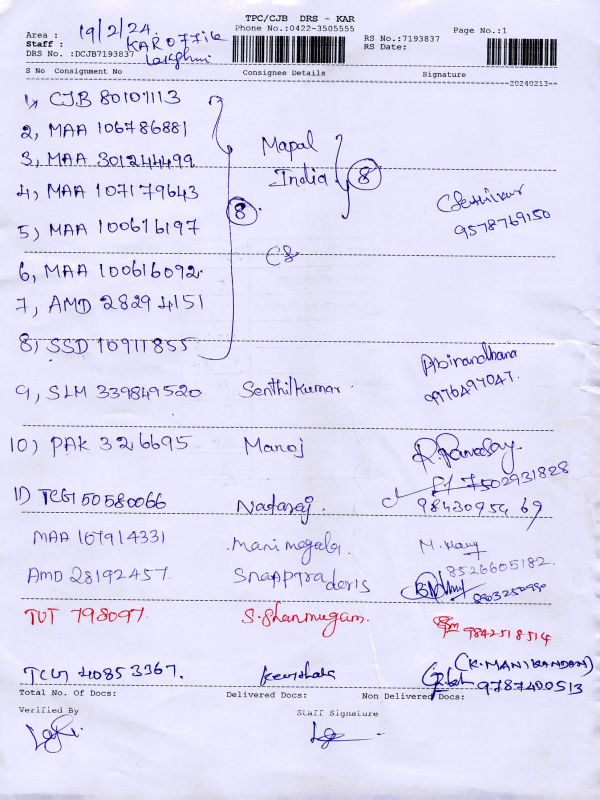 TPC/CJB DRS - KAR
Phone No.:0422-3505555
Page No.:1
Area : 19/2/24
RS No.:7193837
Staff : KAR OFFICE
RS Date:
DRS No. :DCJB7193837 Lakshmi
S No Consignment No Consignee Details Signature
20240213
1, CJB 80101113
2, MAA 106786881
Mapal
3, MAA 301244499
India 8
4, MAA 107179643
8
9578769150
5) MAA 100616197
6, MAA 100616092
7, AMD 28294151
8) SSD 10911855
Abinandhana
9, SLM 339849520 Senthilkumar
10) PAK 326695 Manoj
7502931828
11) TCG1 50580066 Nataraj 98430954 69
MAA 167914331 Manimegala
8526605182
AMD 28192457
TUT 798097 S. Shanmugam 9842518514
(K. MANIKANDAN)
9787400513
Total No. Of Docs: Delivered Docs: Non Delivered Docs:
Verified By Staff Signature